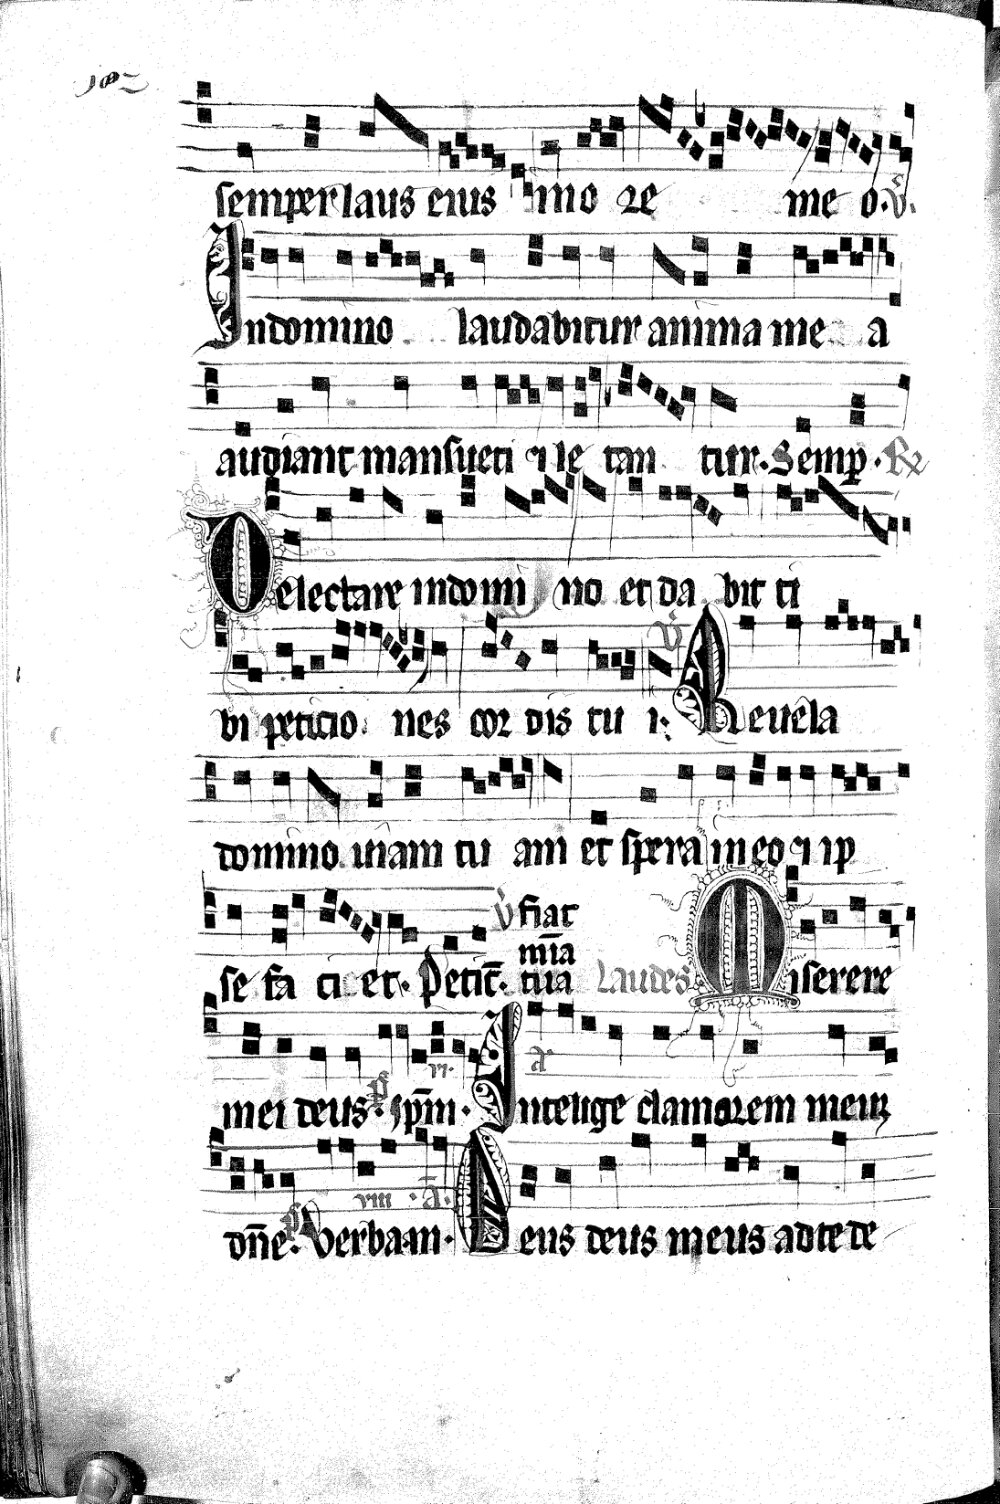 semper laus eius i no re me o. V.
In domino laudabitur anima me a
audiant mansueti ⁊ le tan tur. Semp. R
Delectare in domi no et da bit ti
bi peticio nes cor dis tu i. V Revela
domino viam tu am et spera in eo ⁊ ip
se fa ci et. Petit. V fiat mīa tua Laudes Miserere
mei deus. p̄s sp̄m. vi. a Intelige clamorem meum
dn̄e. p̄s Verba m. viii. a. Deus deus meus ad te de